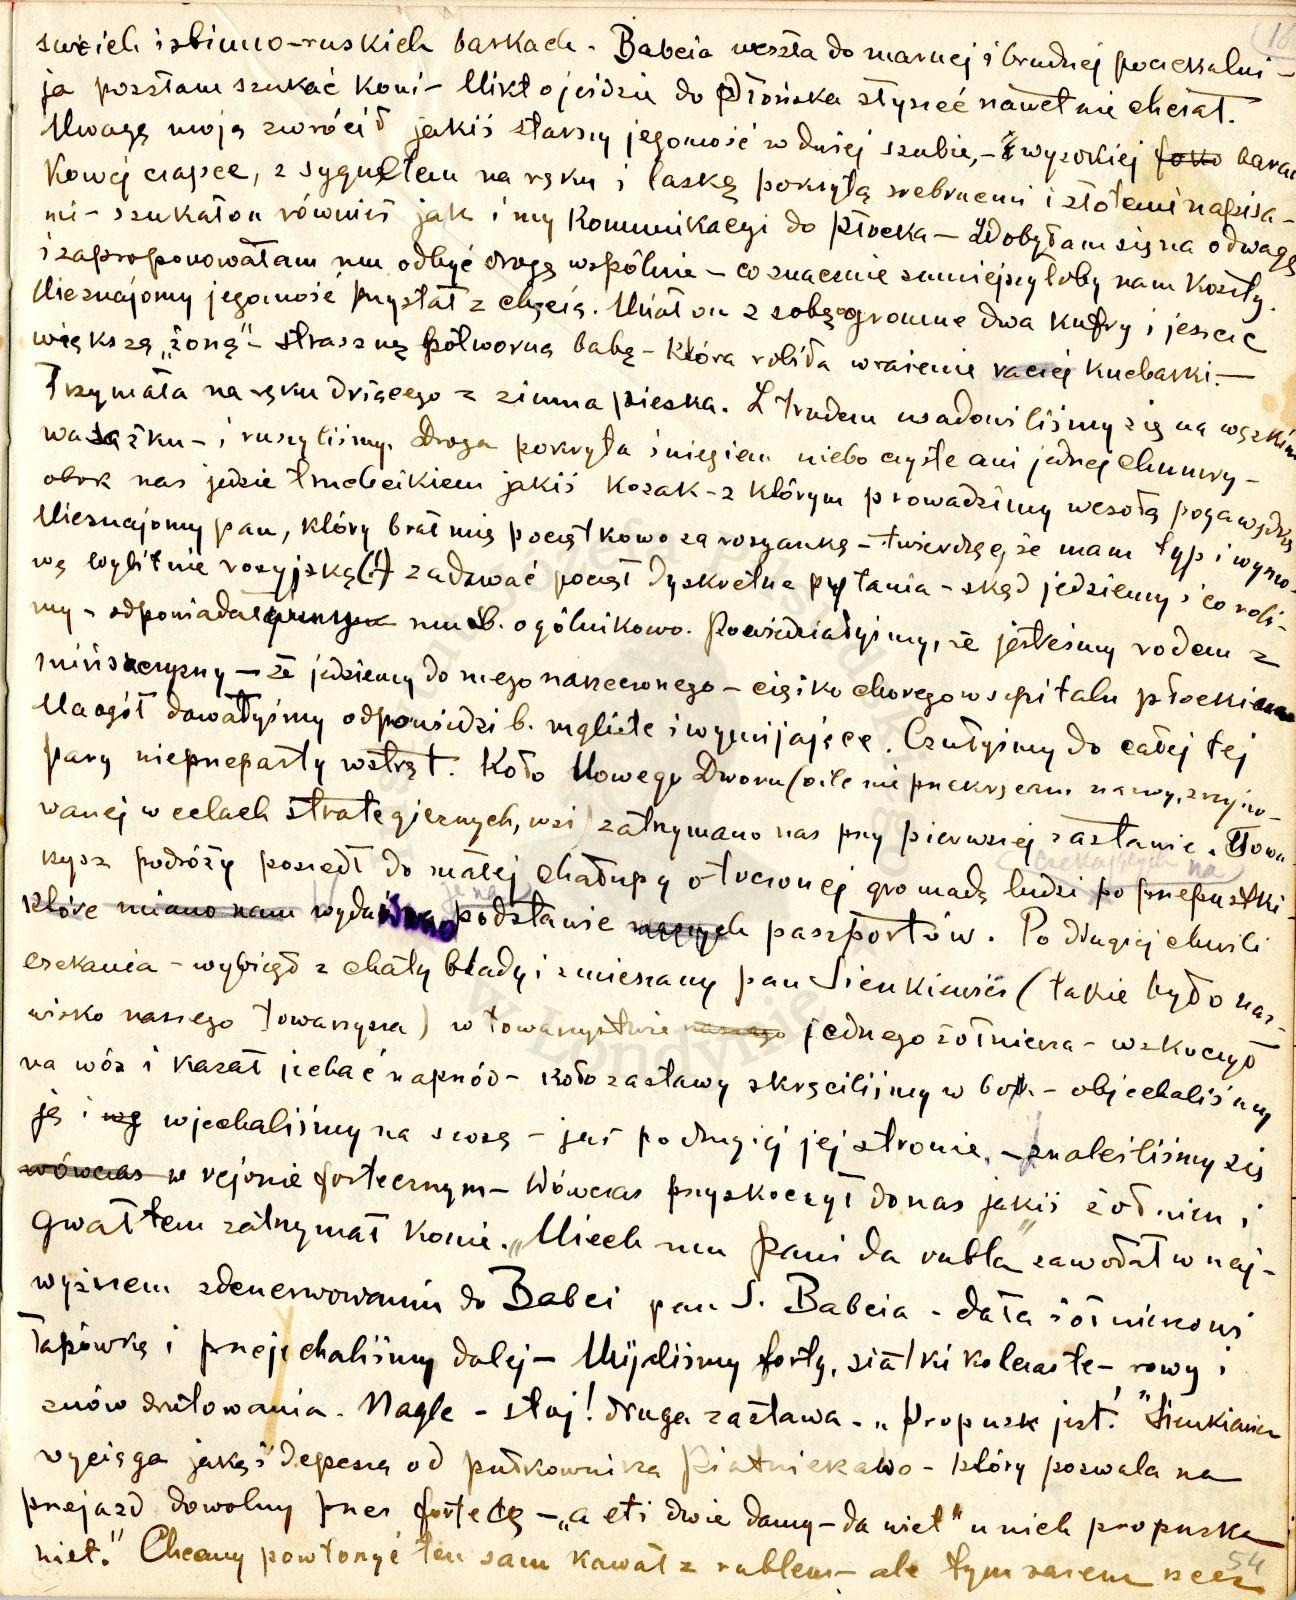 swoich izbinno-ruskich barkach. Babcia weszła do marnej i brudnej poczekalni -
ja poszłam szukać koni - Nikt o jeździe do Płońska słyszeć nawet nie chciał.
Uwagę moją zwrócił jakiś starszy jegomość w dużej szubie, - i wysokiej foko baran
kowej czapce, z sygnetem na ręku i laską pokrytą srebrnemi i złotemi napisa-
mi - szukał on również jak i my kommunikacyi do Płocka - Zdobyłam się na odwagę
i zaproponowałam mu odbyć drogę wspólnie - co znacznie zmniejszyłoby nam koszty.
Nieznajomy jegomość przystał z chęcią. Miał on z sobą ogromne dwa kufry i jeszcze
większą "żoną" - straszną potworną babę - która robiła wrażenie raczej kucharki. -
Trzymała na ręku drżącego z zimna pieska. Z trudem usadowiliśmy się na wązkim
wasążku - i ruszyliśmy. Droga pokryta śniegiem niebo czyste ani jednej chmury -
obok nas jedzie truchcikiem jakiś kozak - z którym prowadzimy wesołą pogawędkę
Nieznajomy pan, który brał mię początkowo za rosyankę - twierdząc, że mam typ i wymo-
wę wybitnie rosyjską (!) zadawać począł dyskretne pytania - skąd jedziemy i co robi-
my - odpowiadałyśmy mu b. ogólnikowo. Powiedziałyśmy, że jesteśmy rodem z
mińszczyzny - że jedziemy do mego narzeczonego - ciężko chorego w szpitalu płockim
Na ogół dawałyśmy odpowiedzi b. mgliste i wymijające. Czułyśmy do całej tej
pary nieprzeparty wstręt. Koło Nowego Dworu (o ile nie przekręcam nazwy, zrujno-
wanej w celach strategicznych, wsi) zatrzymano nas przy pierwszej zastawie. Towa-
rzysz podróży poszedł do małej chałupy otoczonej gromadą ludzi po przepustki - czekających na
które miano nam wydawano je na podstawie naszych paszportów. Po długiej chwili
czekania - wybiegł z chaty blady i zmieszany pan Sienkiewicz (takie było naz-
wisko naszego towarzysza) w towarzystwie naszego jednego żołnierza - wskoczył
na wóz i kazał jechać naprzód - koło zastawy skręciliśmy w bok - objechaliśmy
ją i wy wjechaliśmy na szosę - już po drugiej jej stronie. - znaleźliśmy się
wówczas w rejonie fortecznym - Wówczas przyskoczył do nas jakiś żołnierz i
gwałtem zatrzymał konie. "Niech mu Pani da rubla" zawołał w naj-
wyższem zdenerwowaniu do Babci pan S. Babcia - dała żołnierzowi
łapówkę i przejechaliśmy dalej - Mijaliśmy forty, siatki kolczaste - rowy i
znów drutowania. Nagle - stój! druga zastawa - "Propusk jest!" Sienkiewicz
wyciąga jakąś depeszę od pułkownika Piatnickawo - który pozwala na
przejazd dowolny przez fortecę - "a eti dwie damy - da niet" u nich propuska
niet." Chcemy powtórzyć ten sam kawał z rublem - ale tym razem rzecz
54
16